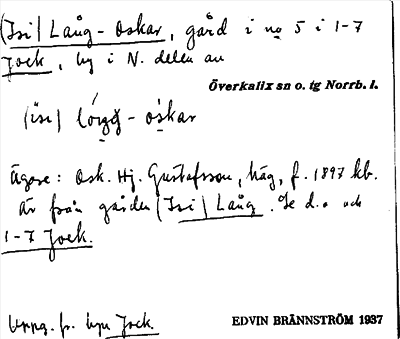 (Isi) Lång-Oskar, gård i no 5 i 1-7
Jock, by i N. delen av
Överkalix sn o. tg Norrb. l.
(isi) lóŋg-òskar
Ägare: Osk. Hj. Gustafsson, häg, f. 1897 kb.
Är från gården (Isi) Lång. Se d.o och
1-7 Jock.
Uppg. fr. byn Jock.
EDVIN BRÄNNSTRÖM 1937